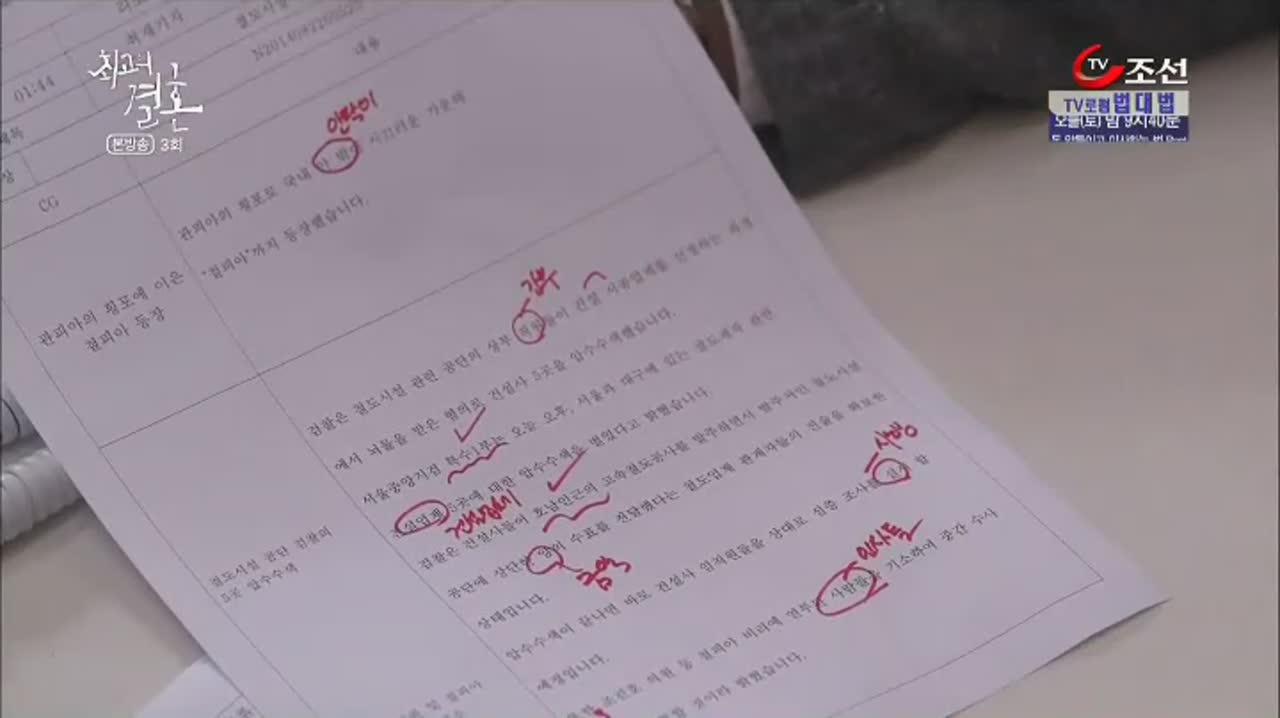 최고의
결혼
본방송 3회
TV조선
TV로펌 법대법
오늘(토) 밤 9시40분
01:44
최재기자
내용
CG
관피아의 횡포로 국내 안 밖이 시끄러운 가운데
안팎이
"철피아"까지 등장했습니다.
관피아의 횡포에 이은
철피아 등장
간부
검찰은 철도시설 관련 공단의 상부 직원들이 건설 시공업체를 선정하는 과정
에서 뇌물을 받은 혐의로 건설사 5곳을 압수수색했습니다.
서울중앙지검 특수1부는 오늘 오후, 서울과 대구에 있는 철도궤라 관련
건설업체 5곳에 대한 압수수색을 벌였다고 밝혔습니다.
검찰은 건설사들이 호남인근의 고속철도공사를 발주하면서 발주처인 철도시설
공단에 상단한 양의 수표를 전달했다는 철도업계 관계자들의 진술을 확보한
금액
상태입니다.
시행
압수수색이 끝나면 바로 건설사 임직원들을 상대로 집중 조사를 실시 할
예정입니다.
인사들
조건호 의원 등 철피아 비리에 연루된 사람들을 기소하여 중간 수사
할 것이라 밝혔습니다.
철도시설 공단 검찰의
5곳 압수수색